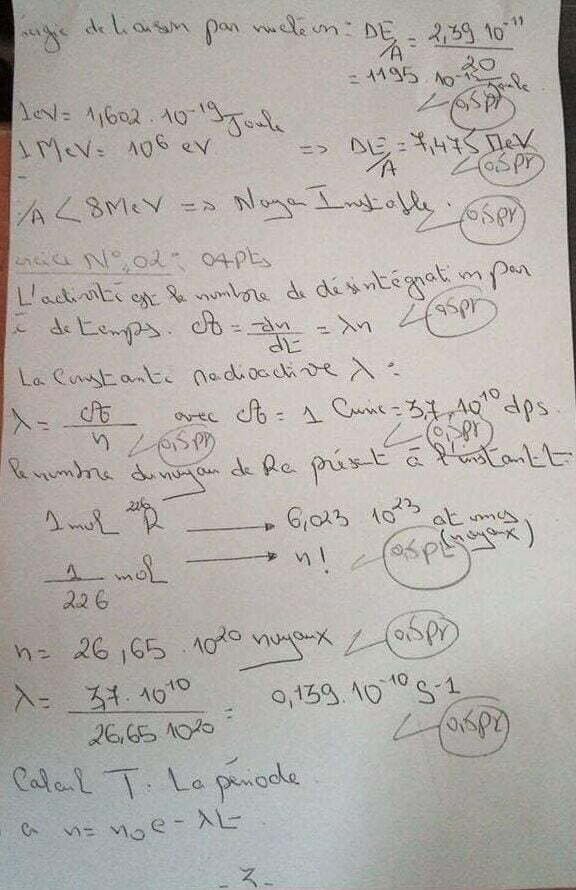 de liaison par nucléon : ΔE/A = 2,39 10⁻¹¹/20
= 1195 . 10⁻¹⁵ Joule
0,5pt
1eV = 1,602 . 10⁻¹⁹ Joule
1 MeV = 10⁶ eV => ΔE/A = 7,475 MeV
0,5pt
/A < 8 MeV => Noyau Instable.
0,5pt
N°,02 : 04pts
L'activité est le nombre de désintégration par
de temps. A = dn/dt = λn
0,5pt
La Constante radioactive λ :
λ = A/n avec A = 1 Curie = 3,7.10¹⁰ dps.
0,5pt 0,5pt
le nombre du noyau de Ra présent à l'instant t
1 mol ²²⁶R → 6,023 10²³ atomes
(noyaux)
1/226 mol → n!
0,5pt
n = 26,65 . 10²⁰ noyaux
0,5pt
λ = 3,7 . 10¹⁰/26,65 10²⁰ = 0,139.10⁻¹⁰ S-1
0,5pt
Calcul T . La période
a n = n₀e - λt
- 3 -